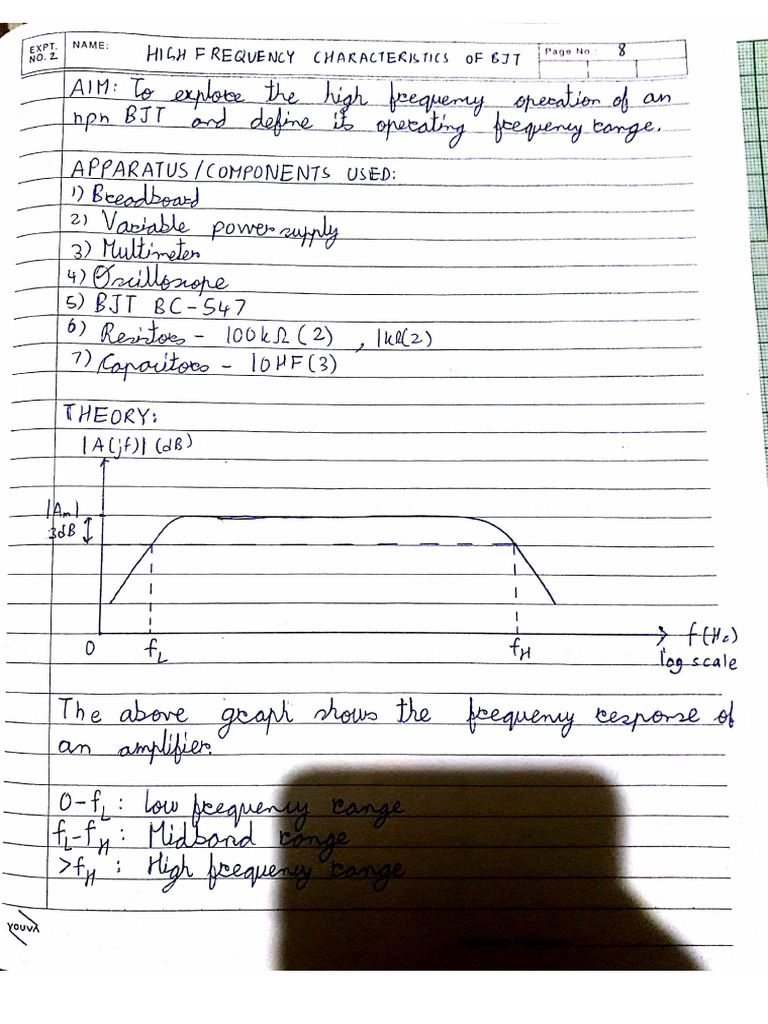 EXPT. NO. 2 NAME: HIGH FREQUENCY CHARACTERISTICS OF BJT Page No. 8
AIM: To explore the high frequency operation of an
npn BJT and define its operating frequency range.
APPARATUS/COMPONENTS USED:
1) Breadboard
2) Variable power supply
3) Multimeter
4) Oscilloscope
5) BJT BC-547
6) Resistors - 100kΩ(2), 1kΩ(2)
7) Capacitors - 10μF(3)
THEORY:
|A(jf)| (dB)
|Am|
3dB
0 fL fH f(Hz)
log scale
The above graph shows the frequency response of
an amplifier.
0-fL: Low frequency range
fL-fH: Midband range
>fH: High frequency range
youva